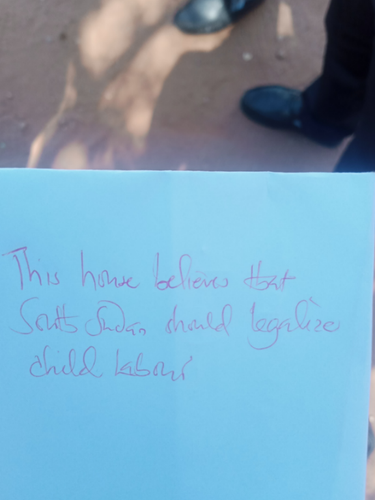 This house believes that
South Sudan should legalize
child Labour